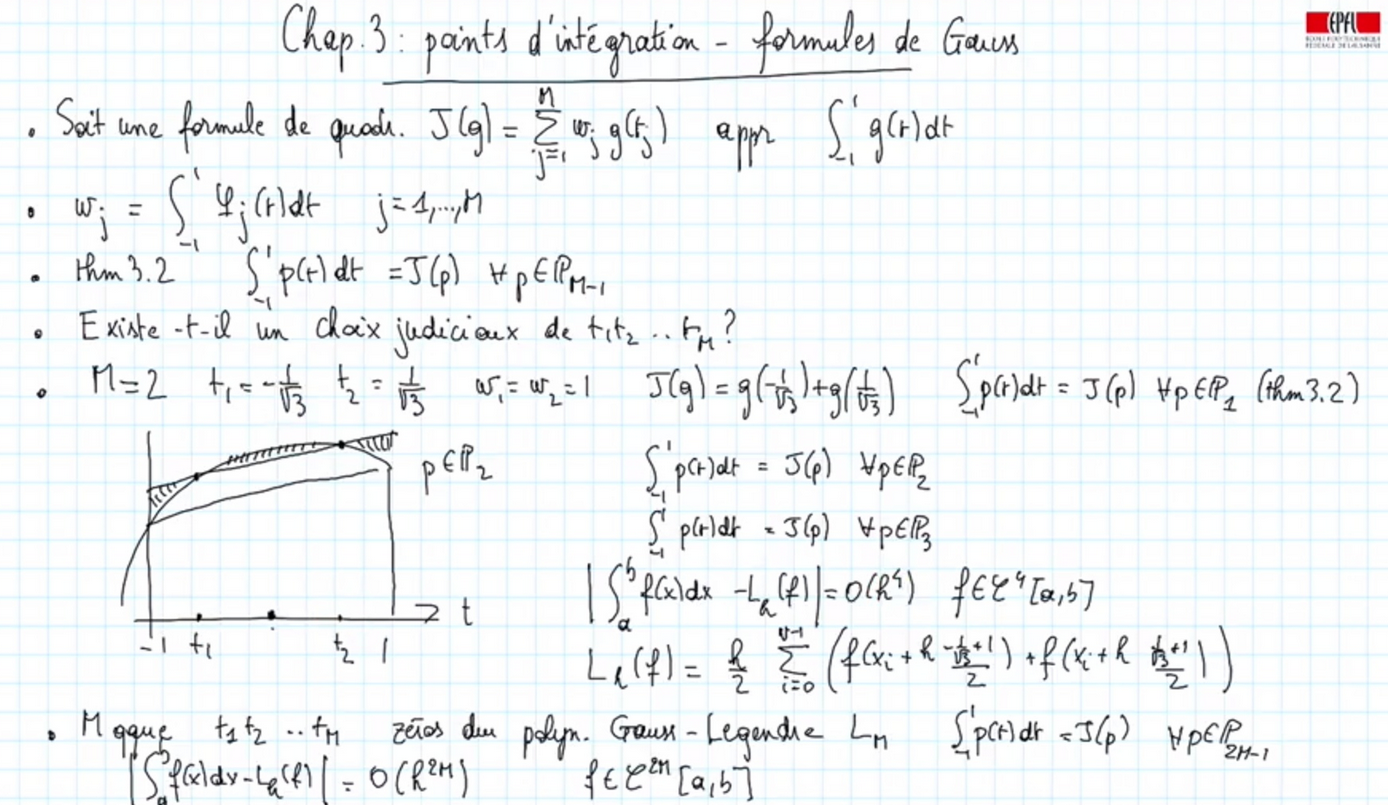 Chap.3 : points d'intégration - formules de Gauss
EPFL
ÉCOLE POLYTECHNIQUE
FÉDÉRALE DE LAUSANNE
• Soit une formule de quadr. J(g) = ∑_{j=1}^{M} w_j g(t_j) appr ∫_{-1}^{1} g(t)dt
• w_j = ∫_{-1}^{1} φ_j(t)dt j=1,...,M
• thm 3.2 ∫_{-1}^{1} p(t)dt = J(p) ∀ p∈ℙ_{M-1}
• Existe-t-il un choix judicieux de t_1 t_2 .. t_M ?
• M=2 t_1 = -1/√3 t_2 = 1/√3 w_1 = w_2 = 1 J(g) = g(-1/√3) + g(1/√3) ∫_{-1}^{1} p(t)dt = J(p) ∀p∈ℙ_1 (thm 3.2)
p∈ℙ_2
∫_{-1}^{1} p(t)dt = J(p) ∀p∈ℙ_2
∫_{-1}^{1} p(t)dt = J(p) ∀p∈ℙ_3
|∫_a^b f(x)dx - L_h(f)| = O(h^4) f∈C^4[a,b]
-1 t_1 t_2 1 t
L_h(f) = h/2 ∑_{i=0}^{N-1} (f(x_i + h (-1/√3 +1)/2) + f(x_i + h (1/√3 +1)/2))
• M qque t_1 t_2 .. t_M zéros du polyn. Gauss-Legendre L_M ∫_{-1}^{1} p(t)dt = J(p) ∀p∈ℙ_{2M-1}
|∫_a^b f(x)dx - L_h(f)| = O(h^{2M}) f∈C^{2M}[a,b]